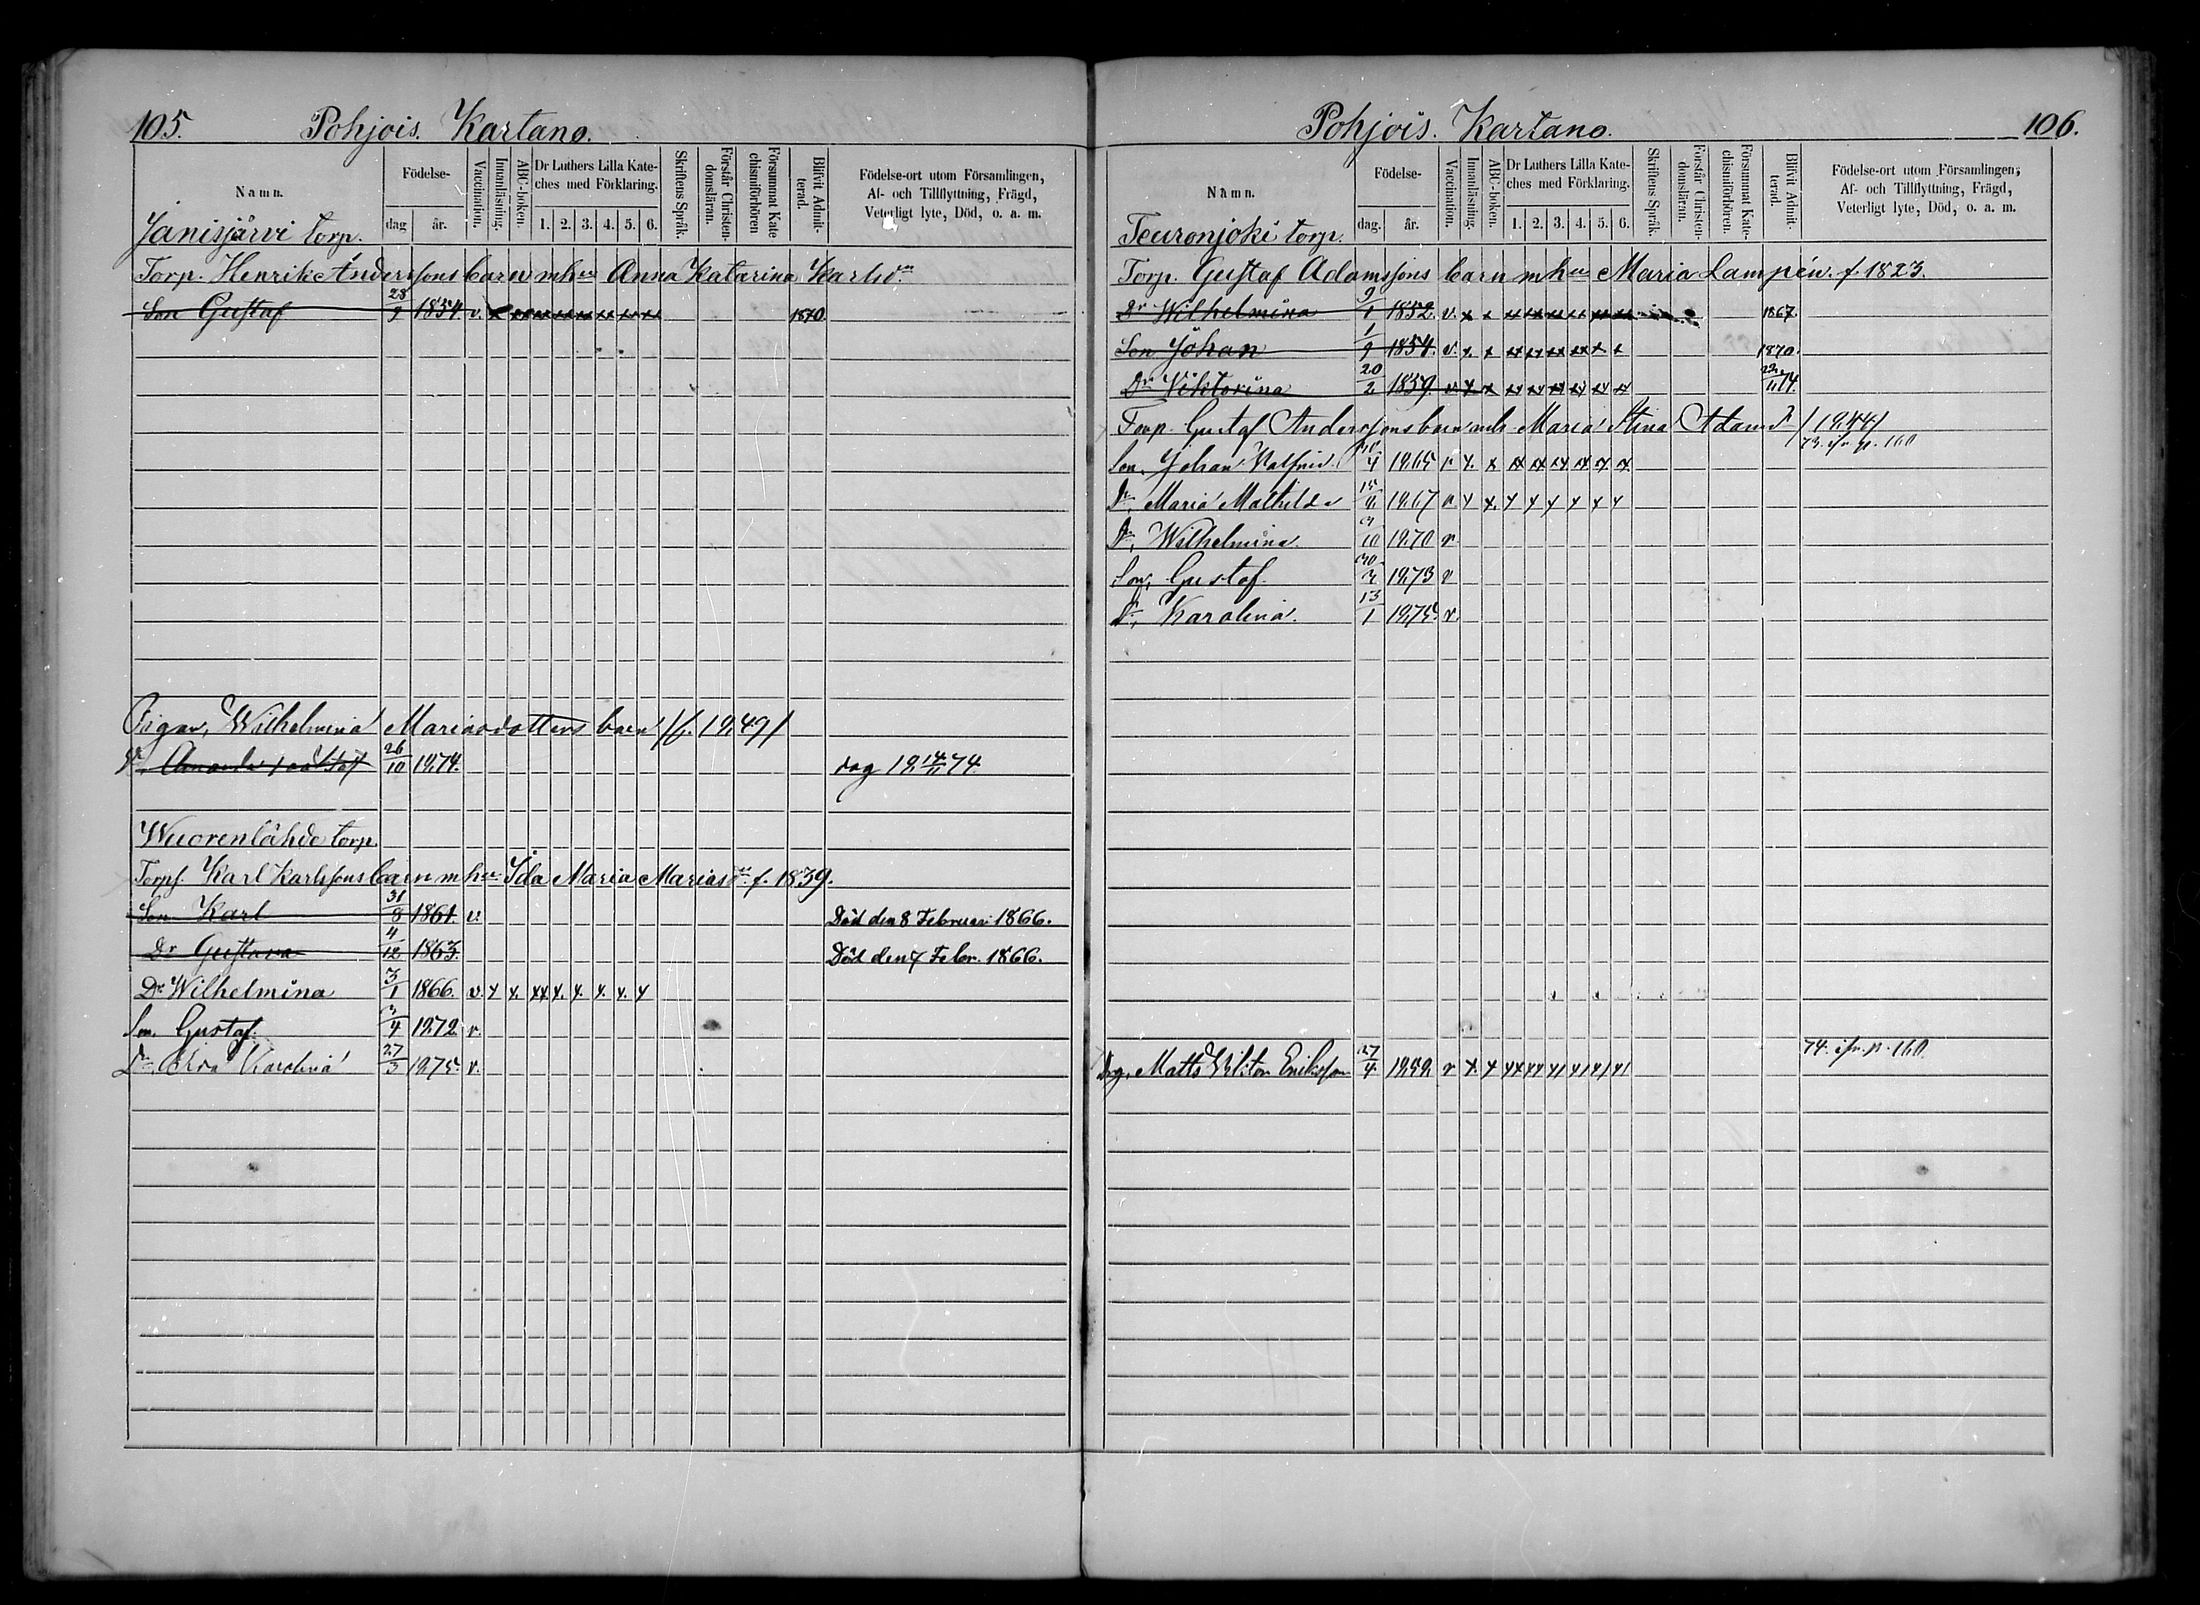 105. Pohjois. Kartano.
Namn.
Födelse-
dag
år.
Vaccination.
Innanläsning.
ABC-boken.
Dr Luthers Lilla Kate-
ches med Förklaring.
1. 2. 3. 4. 5. 6.
Skriftens Språk.
Förstår Christen-
domsläran.
Försummat Kate
chismiförhören
Blifvit Admit-
terad.
Födelse-ort utom Församlingen,
Af- och Tillflyttning, Frägd,
Veterligt lyte, Död, o. a. m.
Janisjärvi torp.
Torp. Henrik Anderssons barn m hu Anna Katarina Karlsdr
Son Gustaf 23/9 1854. v. x xx xx xx xx xx xx xx 1870.
Pigan, Wilhelmina Mariasdotters barn /f. 1849/
Dr 26/10 1874. 18 14/11 74.
Wuorenlähde torp.
Torp. Karl Karlssons barn m hu Ida Maria Mariasdr f. 1839.
Son Karl 31/8 1861. v. Död den 8 Februari 1866.
Dr Gustava 4/12 1863. Död den 7 Febr. 1866.
Dr Wilhelmina 3/1 1866. v. x x. xx x. x. x. x. x
Son, Gustaf. 3/4 1872 v.
Dr, Eva Karolina 27/3 1875. v.
Pohjois. Kartano. 106.
Namn.
Födelse-
dag.
år.
Vaccination.
Innanläsning.
ABC-boken.
Dr Luthers Lilla Kate-
ches med Förklaring.
1. 2. 3. 4. 5. 6.
Skriftens Språk.
Förstår Christen-
domsläran.
Försummat Kate-
chismiförhören.
Blifvit Admit-
terad.
Födelse-ort utom Församlingen,
Af- och Tillflyttning, Frägd,
Veterligt lyte, Död, o. a. m.
Teuronjoki torp.
Torp. Gustaf Adamssons barn m hu Maria Lampén. f. 1823.
Dr Wilhelmina 9/1 1852. v. x x xx xx xx xx xx xx 1867.
Son Johan 1/9 1854. v. x. x xx xx xx xx x x 1870.
Dr Viktorina 20/2 1859. v. x x xx xx xx xx xx xx 22/11 74.
Torp. Gustaf Anderssons barn mh Maria Stina Adamsdr /1844/
73. ifr. p. 160
Son, Johan Valfrid. 4 1865 v x. x xx xx xx xx x x
Dr, Maria Mathilda 1867 v. x x. x x x x x x
Dr, Wilhelmina. 10 1870 v.
Son, Gustaf. 30 1873 v
Dr, Karolina. 13/1 1875. v.
74. ifr. p. 160.
Drg, Matts Viktor Eriksson 27/4 1859 v x. x xx xx x x x x